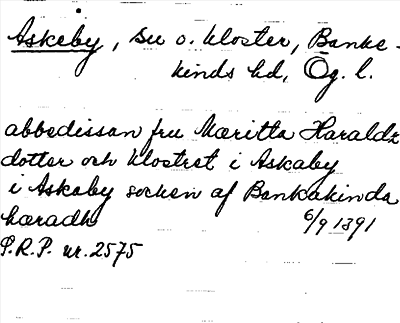 Askeby, sn o. kloster, Banke-
kinds hd, Ög. l.
abbedissan fru Mæritta Haraldz
dotter och klostret i Askaby
i Askaby socken af Bankakinda
hæradh 6/9 1391
S.R.P. nr. 2575